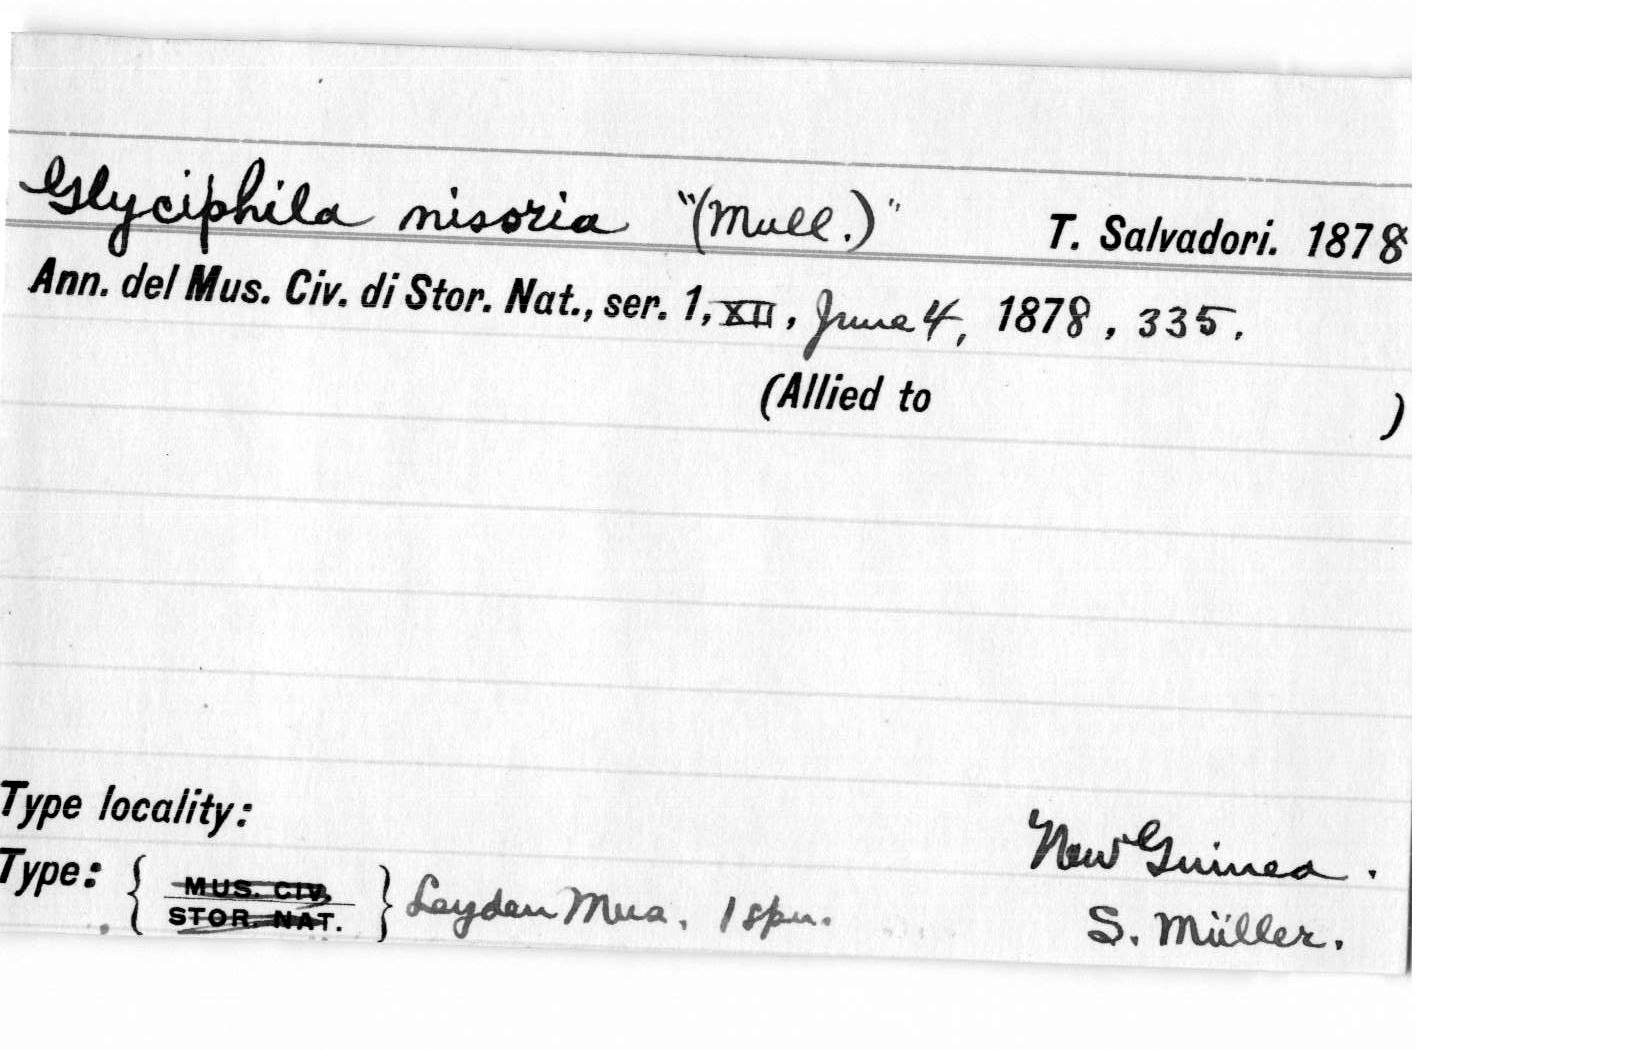 Glyciphila nisoria "(Mull.)" T. Salvadori. 1878
Ann. del Mus. Civ. di Stor. Nat., ser. 1, XII, June 4, 1878, 335.
(Allied to )
Type locality: New Guinea.
Type: { MUS. CIV. STOR. NAT. } Leyden Mus. 1 spn. S. Müller.